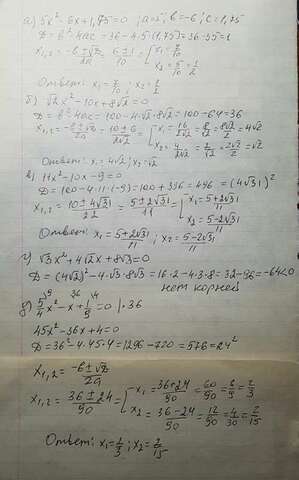 а) 5x² - 6x + 1,75 = 0 ; a=5, b=-6; c=1,75
D = b² - 4ac = 36 - 4·5·(1,75) = 36 - 35 = 1
x₁,₂ = (-b ± √D)/2a = (6 ± 1)/10 = [x₁ = 7/10 ; x₂ = 5/10 = 1/2
Ответ: x₁ = 7/10 ; x₂ = 1/2
б) √2x² - 10x + 8√2 = 0
D = b² - 4ac = 100 - 4·√2·8√2 = 100 - 64 = 36
x₁,₂ = (-b ± √D)/2a = (10 ± 6)/2√2 = [x₁ = 16/2√2 = 8/√2 = 8√2/2 = 4√2 ; x₂ = 4/2√2 = 2/√2 = 2√2/2 = √2
Ответ: x₁ = 4√2 ; x₂ = √2
в) 11x² - 10x - 9 = 0
D = 100 - 4·11·(-9) = 100 + 396 = 496 = (4√31)²
x₁,₂ = (10 ± 4√31)/22 = (5 ± 2√31)/11 = [x₁ = (5+2√31)/11 ; x₂ = (5-2√31)/11
Ответ: x₁ = (5+2√31)/11 ; x₂ = (5-2√31)/11
г) √3x² + 4√2x + 8√3 = 0
D = (4√2)² - 4·√3·8√3 = 16·2 - 4·3·8 = 32 - 96 = -64 < 0
нет корней
д) 5/4x² - x + 1/9 = 0 |·36
45x² - 36x + 4 = 0
D = 36² - 4·45·4 = 1296 - 720 = 576 = 24²
x₁,₂ = (-b ± √D)/2a
x₁,₂ = (36 ± 24)/90 = [x₁ = (36+24)/90 = 60/90 = 6/9 = 2/3
x₂ = (36-24)/90 = 12/90 = 4/30 = 2/15
Ответ: x₁ = 2/3 ; x₂ = 2/15